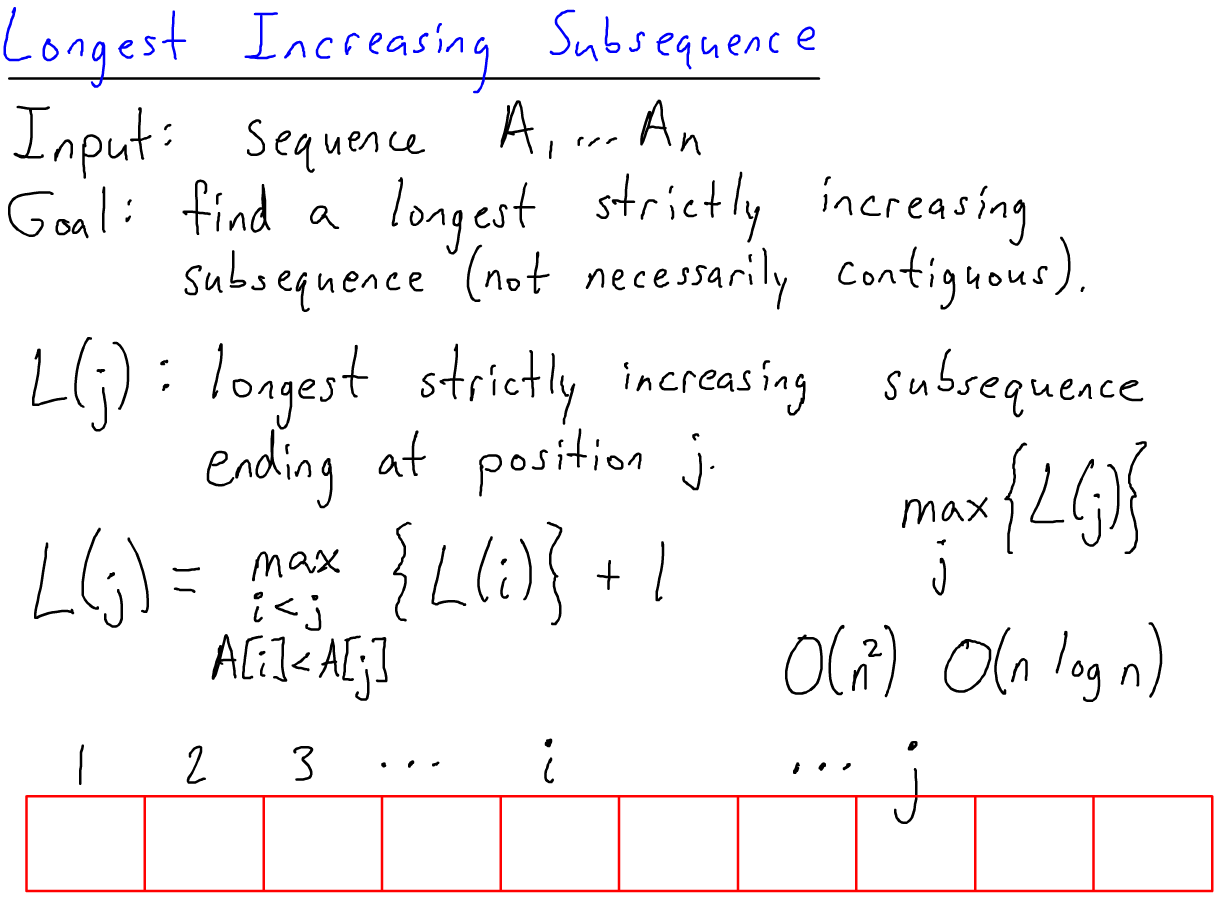 Longest Increasing Subsequence
Input: sequence A₁ ... Aₙ
Goal: find a longest strictly increasing
subsequence (not necessarily contiguous).
L(j) : longest strictly increasing subsequence
ending at position j.
max {L(j)}
j
L(j) = max {L(i)} + 1
i<j
A[i]<A[j]
O(n²) O(n log n)
1 2 3 ... i ... j